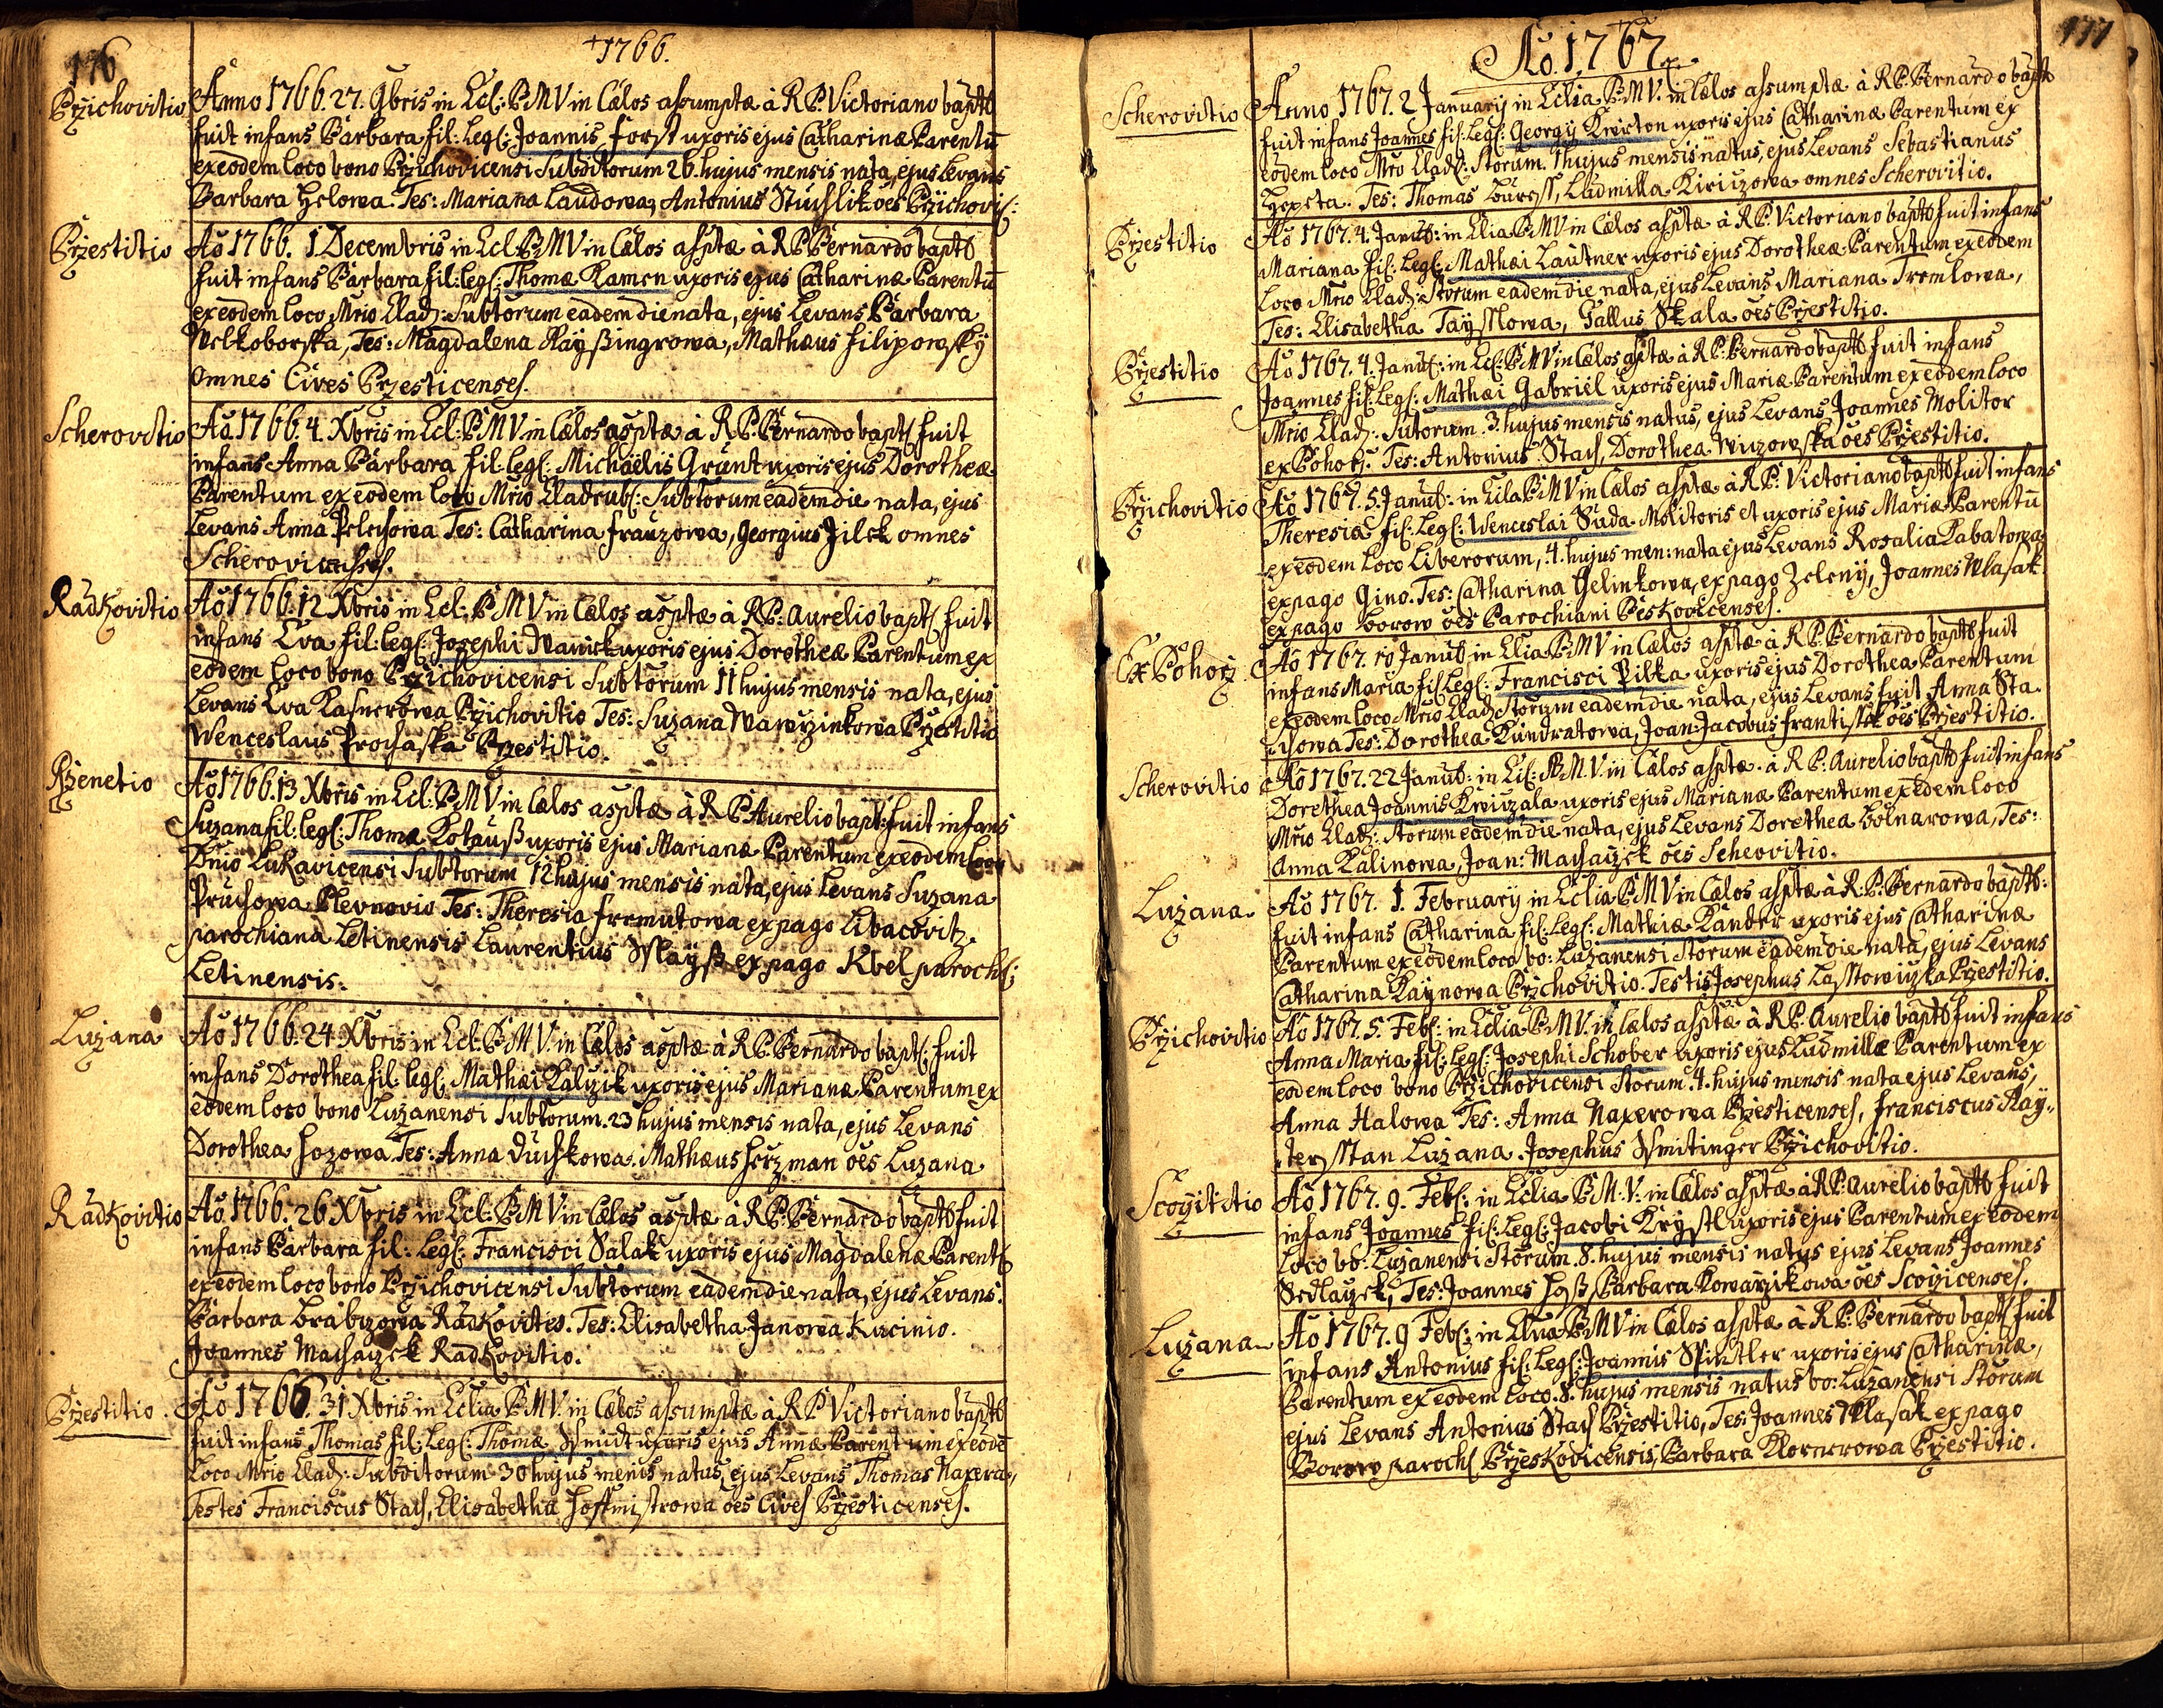 176
1766.
Przichovitio
Anno 1766. 27. 9bris in Ecl: B M V in Cælos assumptæ à R P. Victoriano baptā
fuit infans Barbara fil: Leg: Joannis Forst uxoris ejus Catharinæ Parentū
ex eodem loco bono Przichovicensi Subditorum 26. hujus mensis nata, ejus Levans
Barbara Helowa. Tes: Mariana Laudowa, Antonius Stuchlik oēs Przichovi:
Przestitio
Aō 1766. 1 Decembris in Ecl B M V in Cælos assptæ à R P Bernardo baptā
fuit infans Barbara fil: leg: Thomæ Kamen uxoris ejus Catharinæ Parentū
ex eodem loco Mrio Clad: Subtorum eadem die nata, ejus Levans Barbara
Welkoborska, Tes: Magdalena Rayßingrowa, Mathæus Filipowsky
omnes Cives Przesticenses.
Scherovitio
Aō 1766. 4. Xbris in Ecl: B M V. in Cælos assptæ à R. P. Bernardo bapt: fuit
infans Anna Barbara fil: leg: Michaëlis Grünt uxoris ejus Dorotheæ
Parentum ex eodem loco Mrio Cladrub: Subtorum eadem die nata, ejus
Levans Anna Pelchowa Tes: Catharina Frauzowa, Georgius Jilek omnes
Radkovitio
Aō 1766. 12 Xbris in Ecl: B M V in Cælos assptæ à R P: Aurelio bapt: fuit
infans Eva fil: leg: Josephi Wanick uxoris ejus Dorotheæ Parentum ex
eodem loco bono Przichovicensi Subtorum 11 hujus mensis nata, ejus
Levans Eva Kasnerowa Przichovitio Tes: Suzana Wawrzinkowa Przestitio
Wenceslaus Prochaska Przestitio.
Rzenetio
Aō 1766. 13 Xbris in Ecl: B M V in Cælos assptæ à R P Aurelio bapt: fuit infans
Suzana fil: leg: Thomæ Kotauß uxoris ejus Marianæ Parentum ex eodem loco
Dnio Lukavicensi Subtorum 12 hujus mensis nata, ejus Levans Suzana
Pruchowa Plevnovio Tes: Theresia Fremutowa ex pago Libacovitz
parochiana Letinensis Laurentius Wlayß ex pago Kbel paroch:
Letinensis.
Luzana
Aō 1766. 24 Xbris in Ecl: B M V. in Cælos assptæ à R P. Bernardo bapt: fuit
infans Dorothea fil: leg: Mathæi Kalizik uxoris ejus Marianæ Parentum ex
eodem loco bono Luzanensi Subtorum. 23 hujus mensis nata, ejus Levans
Dorothea Hozowa Tes: Anna Duchkowa. Mathæus Herzman oēs Luzana
Radkovitio
Aō 1766. 26 Xbris in Ecl: B M V in Cælos assptæ à R P: Bernardo baptā fuit
infans Barbara fil: Leg: Francisci Salak uxoris ejus Magdalenæ Parent:
ex eodem loco bono Przichovicensi Subtorum eadem die nata, ejus Levans:
Barbara Brabizowa Radkovitio. Tes: Elisabetha Janowa Kucinio.
Joannes Machaczek Radkovitio.
Przestitio.
Aō 1766. 31 Xbris in Eclia B M V. in Cælos assumptæ à R P Victoriano baptā
fuit infans Thomas fil: Leg: Thomæ Schmidt uxoris ejus Annæ Parentum ex eodē
Loco Mrio Clad: Subditorum 30 hujus mensis natus, ejus Levans Thomas Naxera,
Testes Franciscus Stach, Elisabetha Hoffmistrowa oēs Cives Przesticenses.
177
Aō. 1767
Scherovitio
Anno 1767. 2 January in Eclia B M V. in Cælos assumptæ à R P: Bernardo bapt
fuit infans Joannes fil: Leg: Georgy Kreirton uxoris ejus Catharinæ Parentum ex
eodem loco Mrio Clad: Storum. 1 hujus mensis natus, ejus Levans Sebastianus
Tes: Thomas Buress, Ludmilla Kiriizowa omnes Scherovitio.
Przestitio
Aō 1767. 4. Janu: in Eclia B M V in Cælos assptæ à R P. Victoriano baptā fuit infans
Mariana fil: Leg: Mathæi Lautner uxoris ejus Dorotheæ Parentum ex eodem
Loco Mrio Clad: Storum eadem die nata, ejus Levans Mariana Tremlowa,
Tes: Elisabetha Tayßlowa, Gallus Skala oēs Przestitio.
Przestitio
Aō 1767. 4. Janu: in Ecl: B M V in Cælos asptæ à R P: Bernardo baptā fuit infans
Joannes fil: Leg: Mathæi Gabriel uxoris ejus Mariæ Parentum ex eodem loco
Mrio Clad: Sutorum. 3. hujus mensis natus, ejus Levans Joannes Molitor
ex Pohorz. Tes: Antonius Stach, Dorothea Wiczowska oēs Przestitio.
Przichovitio
Aō 1767. 5. Janu: in Eclia B M V in Cælos assptæ à R P: Victoriano baptā fuit infans
Theresia fil: Leg: Wenceslai Suda Molitoris et uxoris ejus Mariæ Parentū
ex eodem loco Liberorum, 4. hujus men: nata ejus Levans Rosalia Kabatowa
ex pago Gino. Tes: Catharina Gelinkowa, ex pago Zeleny, Joannes Wlasak
ex pago Borow oēs Parochiani Peskovicenses.
Ex Pohorz
Aō 1767. 10 Janu: in Eclia B M V in Cælos assptæ à R P. Bernardo baptā fuit
infans Maria fil: Leg: Francisci Pilka uxoris ejus Dorothea Parentum
ex eodem loco Mrio Clad: Storum eadem die nata, ejus Levans fuit Anna Sta-
chowa Tes: Dorothea Kundratowa, Joan: Jacobus Frantißek oēs Przestitio.
Scherovitio
Aō 1767. 22 Janu: in Ecl: B. M. V in Cælos assptæ à R P: Aurelio baptā fuit infans
Dorothea Joannis Kreiuzala uxoris ejus Marianæ Parentum ex edem loco
Mrio Clad: Storum eadem die nata, ejus Levans Dorothea Bolnarowa, Tes:
Anna Kalinowa, Joan: Machaczek oēs Scheovitio.
Luzana
Aō 1767. 1. February in Eclia B M V in Cælos assptæ à R: P: Bernardo baptā:
fuit infans Catharina fil: Leg: Mathiæ Kander uxoris ejus Catharinæ
Parentum ex eodem loco bo: Luzanensi Storum eadem die nata, ejus Levans
Catharina Kaynowa Przchovitio. Testis Josephus Lastowiczka Przestitio.
Przichovitio
Aō 1767. 5. Feb: in Eclia B M V. in Cælos assptæ à R P. Aurelio baptā fuit infans
Anna Maria fil: Leg: Josephi Schober uxoris ejus Ludmillæ Parentum ex
eodem loco bono Przichovicensi Storum. 4. hujus mensis nata ejus Levans,
Anna Halowa Tes: Anna Naxerowa Przesticenses, Franciscus Ray-
terßtan Luzana. Josephus Schmitinger Przichovitio.
Scozititio
Aō 1767. 9. Feb: in Eclia B M: V: in Cælos assptæ à R P: Aurelio baptā fuit
infans Joannes fil: Leg: Jacobi Krystl uxoris ejus Parentum ex eodem
Loco bo: Luzanensi Storum. 8. hujus mensis natus ejus Levans Joannes
Sedlaczek, Tes: Joannes Hoß, Barbara Kowarzikowa oēs Scozicenses.
Luzana
Aō 1767. 9 Feb: in Eclia B M V in Cælos assptæ à R P: Bernardo bapt: fuit
infans Antonius fil: Leg: Joannis Spintler uxoris ejus Catharinæ,
Parentum ex eodem loco. 8. hujus mensis natus bo: Luzanensi Storum
ejus Levans Antonius Stach Przestitio, Tes: Joannes Wlasak ex pago
Borow paroch: Przeskovicensis, Barbara Kornerowa Przestitio.